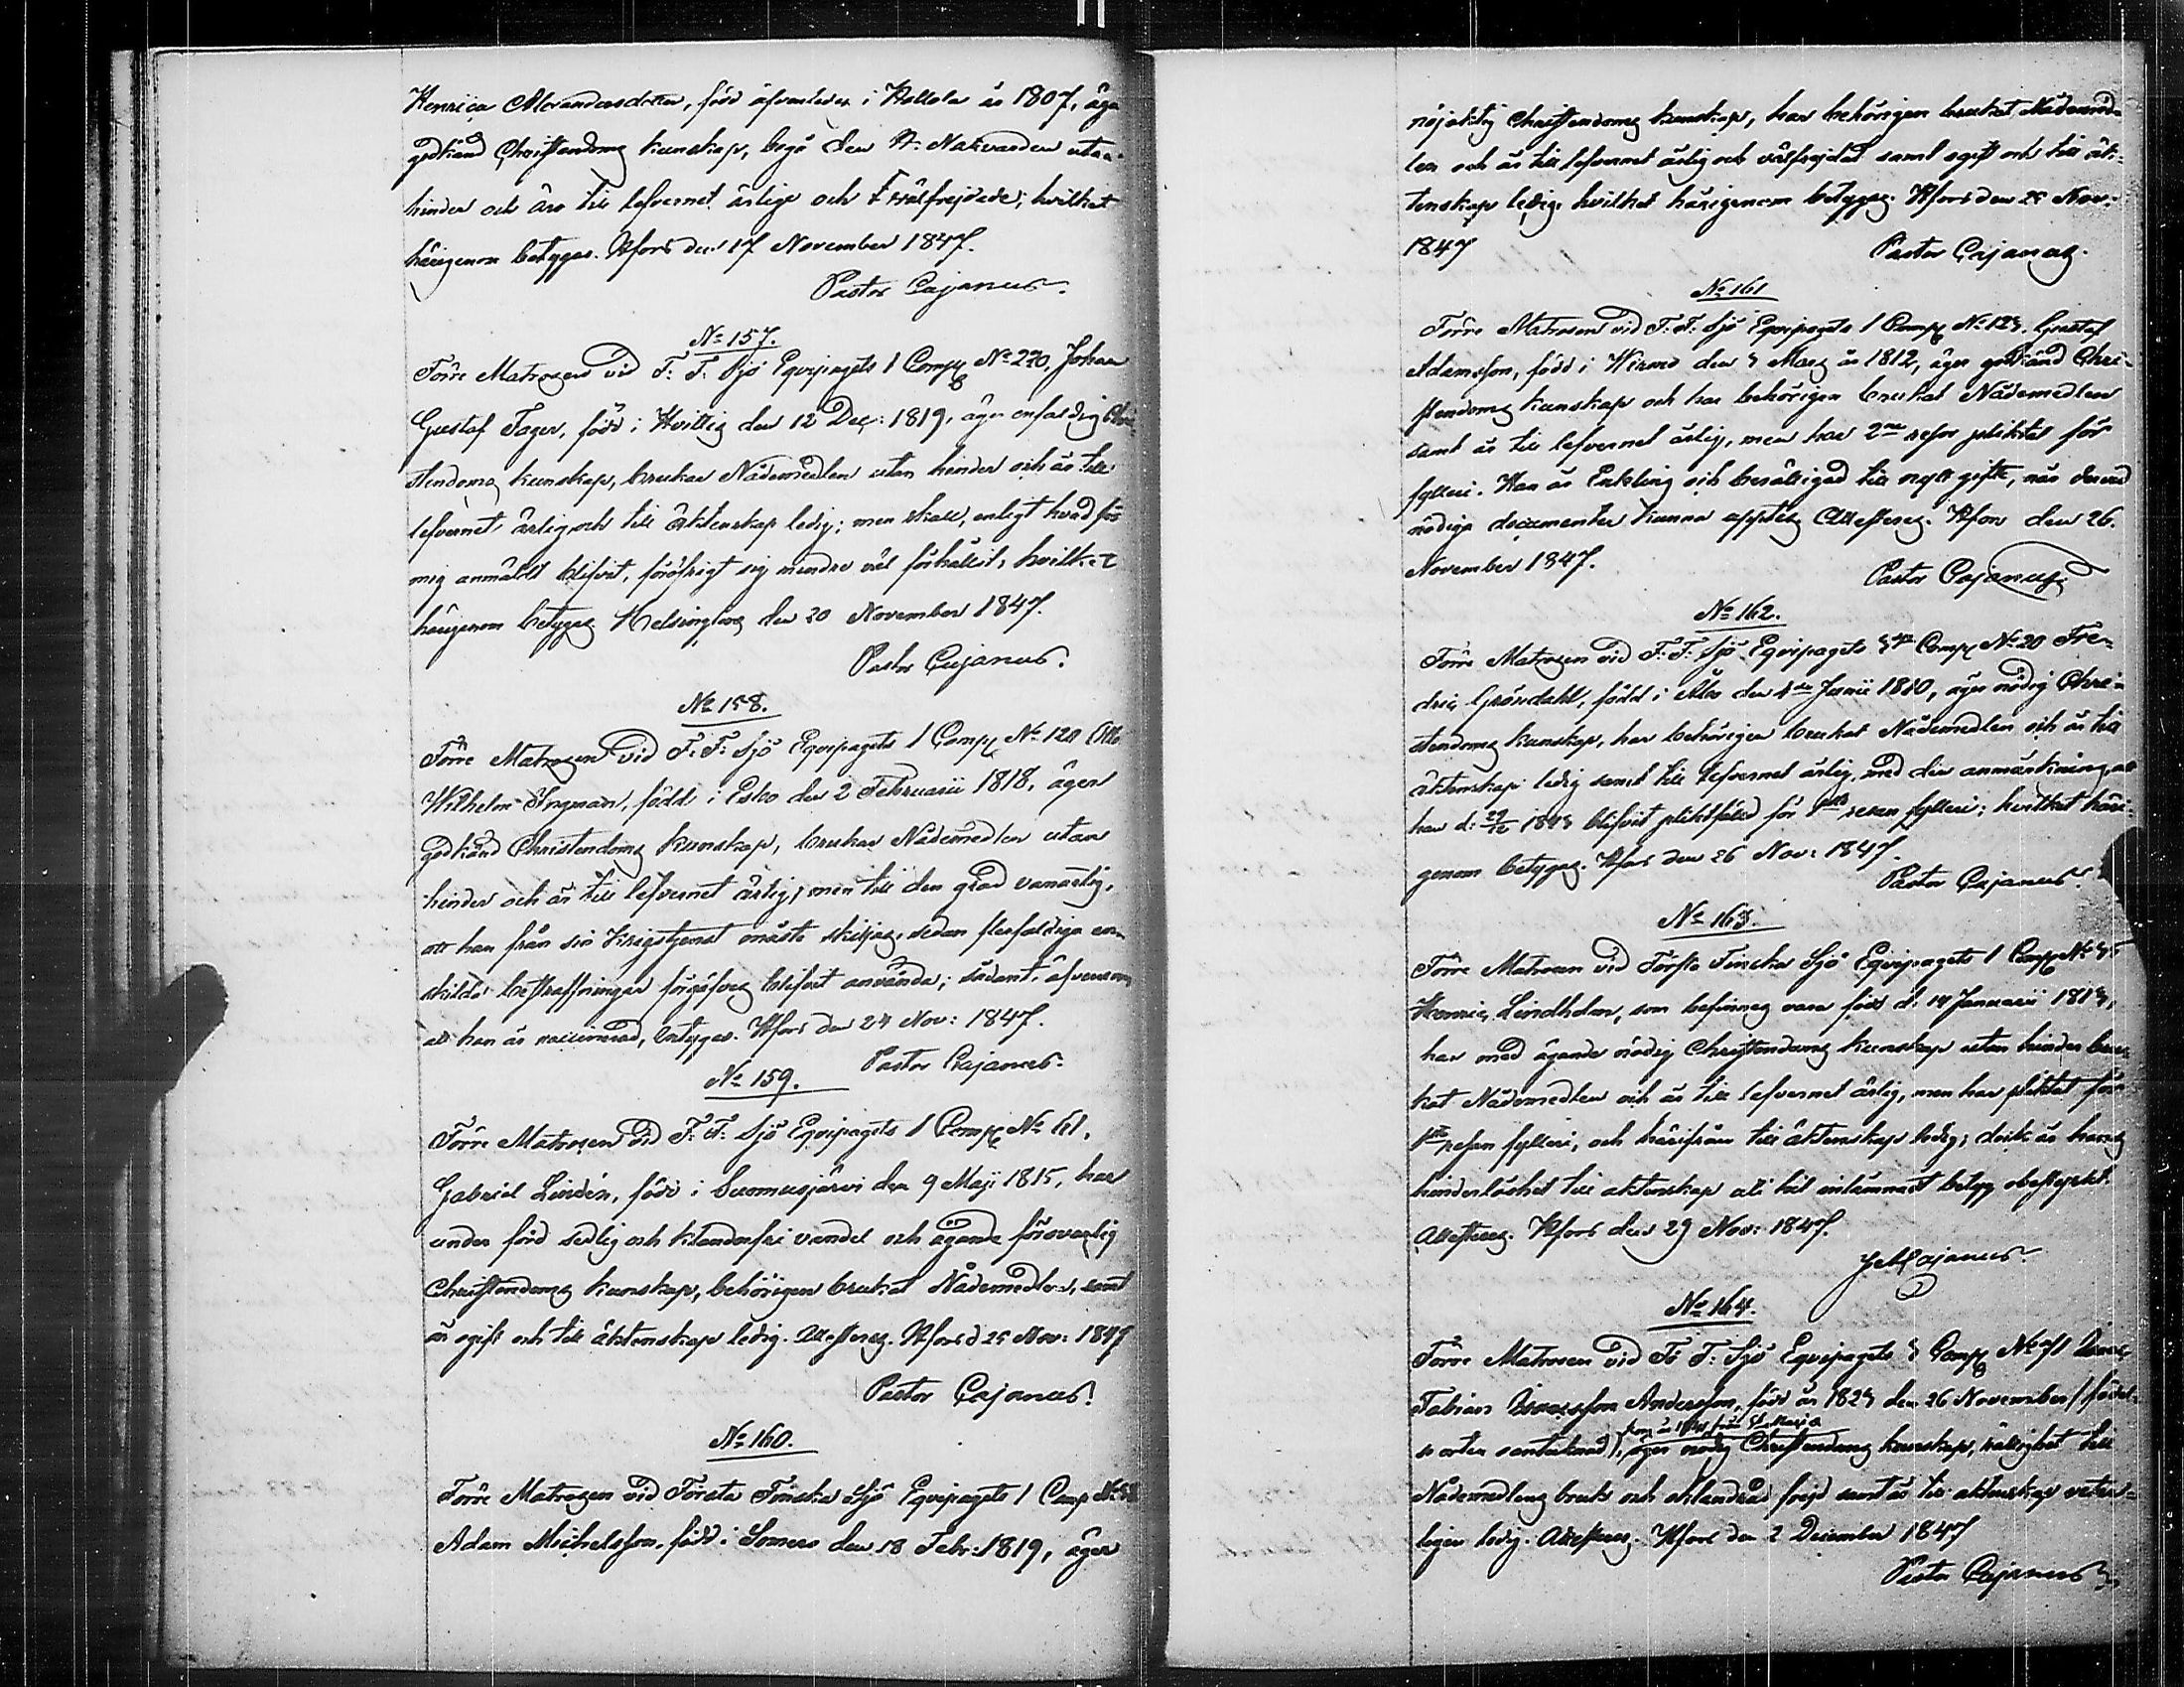 Henrica Alexandersdotter, född äfvenledes i Hollola år 1807, äga
godkänd Christendoms kunskap, begå den H. Nattvarden utan
hinder och äro till lefvernet ärlige och välfrejdade; hvilket
härigenom betygas. Hfors den 17 November 1847.
Pastor Cajanus.
No 157.
Förre Matrosen vid F: F: Sjö Equipagets 1 Comp No 270, Johan
Gustaf Fager, född i Hvittis den 12 Dec: 1819, äger enfaldig Chri-
stendoms kunskap, brukar Nådemedlen utan hinder och är till
lefvernet ärlig och till äktenskap ledig; men skall, enligt hvad för
mig anmäldt blifvit, föröfrigt sig mindre väl förhållit, hvilket
härigenom betygas. Helsingfors den 20 November 1847.
Pastor Cajanus.
No 158.
Förre Matrosen vid F: F: Sjö Equipagets 1 Comp No 120 Otto
Wilhelm Ingman, född i Esbo den 2 Februarii 1818, äger
godkänd Christendoms kunskap, brukar Nådemedlen utan
hinder och är till lefvernet ärlig, men till den grad vanartig,
att han från sin krigstjenst måste skiljas, sedan flerfaldiga en-
skilda bestraffningar förgäfves blifvit använda; sådant, äfvensom
att han är vaccinerad, betygas. Hfors den 24 Nov: 1847.
Pastor Cajanus.
No 159.
Förre Matrosen vid F: F: Sjö Equipagets 1 Comp No 61,
Gabriel Lindén, född i Suomusjärvi den 9 Maji 1815, har
under förd sedlig och klanderfri vandel och ägande försvarlig
Christendoms kunskap, behörigen brukat Nådemedlen, samt
är ogift och till äktenskap ledig. Attesteras. Hfors d 25 Nov: 1847
Pastor Cajanus.
No 160.
Förre Matrosen vid Första Finska Sjö Equipagets 1 Comp No
Adam Michelsson, född i Somero den 18 Febr: 1819, äger
nöjaktig Christendoms kunskap, har behörigen brukat Nådemed-
len och är till lefvernet ärlig och välfrejdad samt ogift och till äk-
tenskap ledig; hvilket härigenom betygas. Hfors den 25 Nov:
1847
Pastor Cajanus.
No 161
Förre Matrosen vid F: F: Sjö Equipagets 1 Comp No 123, Gustaf
Adamsson, född i Wirmo den 3 Mars år 1812, äger godkänd Chri-
stendoms kunskap och har behörigen brukat Nådemedlen
samt är till lefvernet ärlig, men har 2ne resor pliktat för
fylleri. Han är Enkling och berättigad till nytt gifte, när dervid
nödiga documenter kunna uppvisas. Attesteras. Hfors den 26.
November 1847.
Pastor Cajanus.
No 162.
Förre Matrosen vid F: F: Sjö Equipagets Comp No 20 Fre-
dric Gröndahl, född i Åbo den 4de Junii 1810, äger nödig Chri-
stendoms kunskap, har behörigen brukat Nådemedlen och är till
äktenskap ledig samt till lefvernet ärlig, med den anmärkning, att
han d: 29/12 1843 blifvit pliktfälld för 1sta resan fylleri; hvilket häri-
genom betygas. Hfors den 26 Nov: 1847.
Pastor Cajanus.
No 163.
Förre Matrosen vid Första Finska Sjö Equipagets 1 Comp No 35
Henric Lindholm, som befinnes vara född d: 14 Januarii 1813,
har med ägande nödig Christendoms kunskap utan hinder bru-
kat Nådemedlen och är till lefvernet ärlig, men har pliktat för
1sta resan fylleri, och härifrån till äktenskap ledig; dock är hans
hinderlöshet till äktenskap att hit inlämnadt betyg obestyrkt.
Attesteras. Hfors den 29 Nov: 1847.
Cajanus.
No 164.
Förre Matrosen vid Fö F: Sjö Equipagets 3 Comp No 71
Fabian Andersson, född år 1823 den 26 November (födel-
se orten oantecknad), äger nödig Christendoms kunskap, rättighet till
Nådemedlens bruk och oklandrad frejd samt är till äktenskap veter-
ligen ledig. Attesteras. Hfors den 2 December 1847
Pastor Cajanus